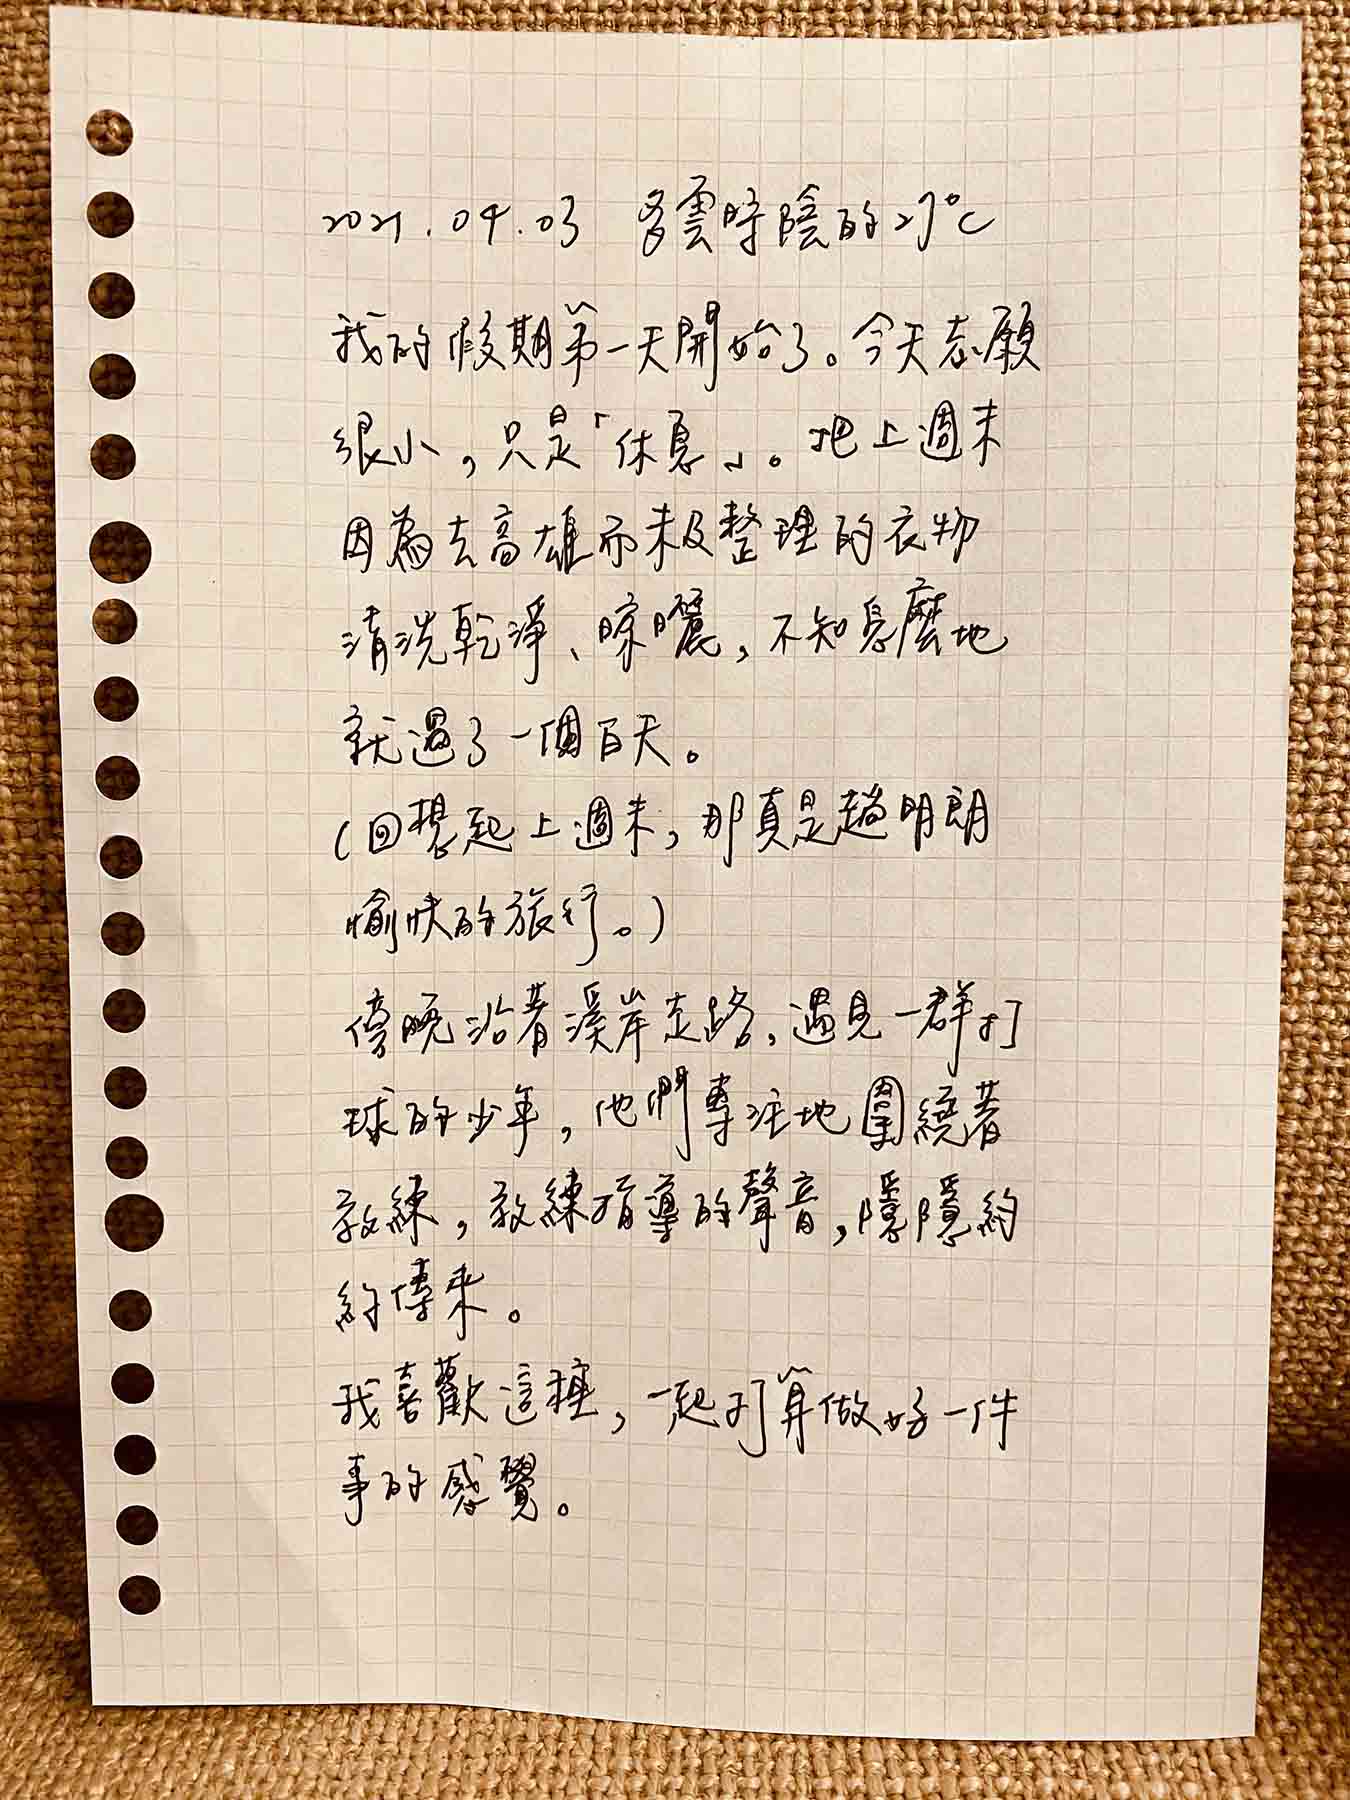 2021.04.03 多雲時陰的27°C
我的假期第一天開始了。今天志願
很小,只是「休息」。把上週末
因為去高雄而未及整理的衣物
清洗乾淨、晾曬,不知怎麼地
就過了一個白天。
(回想起上週末,那真是趟明朗
愉快的旅行。)
傍晚沿著溪岸走路,遇見一群打
球的少年,他們專注地圍繞著
教練,教練指導的聲音,隱隱約
約傳來。
我喜歡這種,一起打算做好一件
事的感覺。